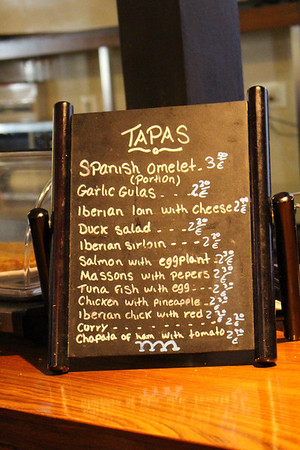 TAPAS
Spanish omelet - 3 00 €
(Portion)
Garlic Gulas - - - 2 20 €
Iberian lan with cheese 2 €
Duck salad - - - 2 20 €
Iberian sirloin - - - 2 20 €
Salmon with eggplant 2 €
Massons with pepers 2 €
Tuna fish with egg - - - 2 €
Chicken with pineapple - 2 €
Iberian chick with red 2 €
Curry - - - - - - - - - - - 2 €
Chapata of ham with tomato 2 €